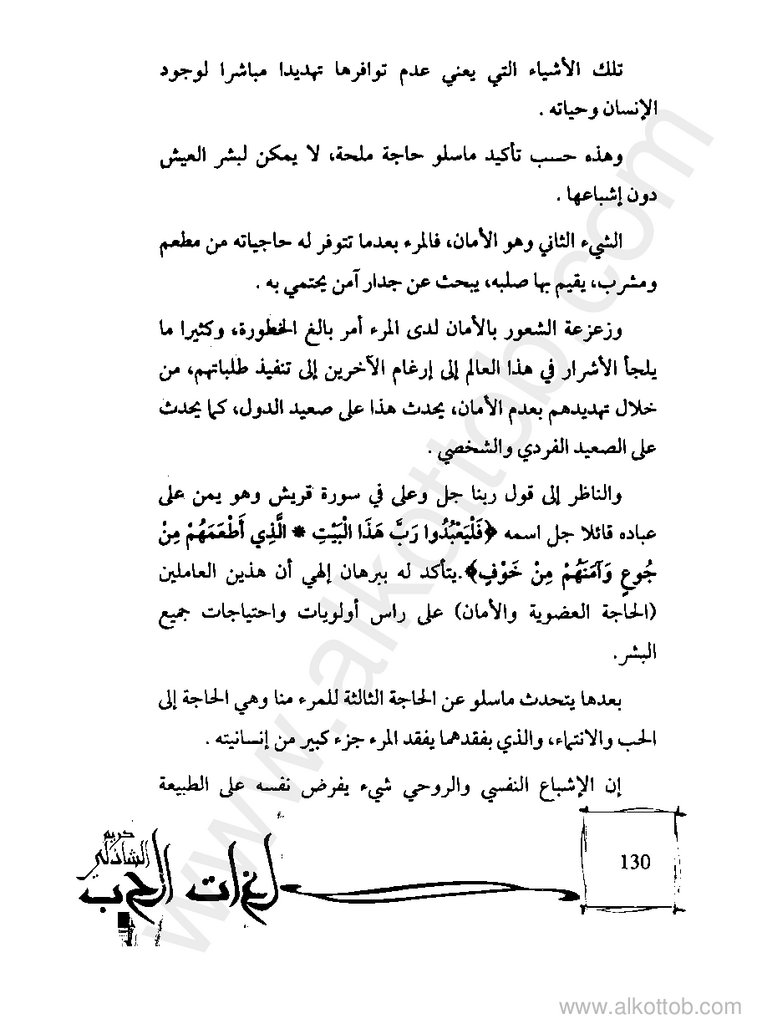 تلك الأشياء التي يعني عدم توافرها تهديدا مباشرا لوجود
الإنسان وحياته .
وهذه حسب تأكيد ماسلو حاجة ملحة، لا يمكن لبشر العيش
دون إشباعها .
الشيء الثاني وهو الأمان، فالمرء بعدما تتوفر له حاجياته من مطعم
ومشرب، يقيم بها صلبه، يبحث عن جدار آمن يحتمي به .
وزعزعة الشعور بالأمان لدى المرء أمر بالغ الخطورة، وكثيرا ما
يلجأ الأشرار في هذا العالم إلى إرغام الآخرين إلى تنفيذ طلباتهم، من
خلال تهديدهم بعدم الأمان، يحدث هذا على صعيد الدول، كما يحدث
على الصعيد الفردي والشخصي .
والناظر إلى قول ربنا جل وعلى في سورة قريش وهو يمن على
عباده قائلا جل اسمه ﴿فَلْيَعْبُدُوا رَبَّ هَذَا الْبَيْتِ * الَّذِي أَطْعَمَهُمْ مِنْ
جُوعٍ وَآمَنَهُمْ مِنْ خَوْفٍ﴾.يتأكد له ببرهان إلهي أن هذين العاملين
(الحاجة العضوية والأمان) على راس أولويات واحتياجات جميع
البشر.
بعدها يتحدث ماسلو عن الحاجة الثالثة للمرء منا وهي الحاجة إلى
الحب والانتماء، والذي بفقدهما يفقد المرء جزء كبير من إنسانيته .
إن الإشباع النفسي والروحي شيء يفرض نفسه على الطبيعة
130
كريم
الشاذلي
لغات الحب
www.alkottob.com
www.alkottob.com